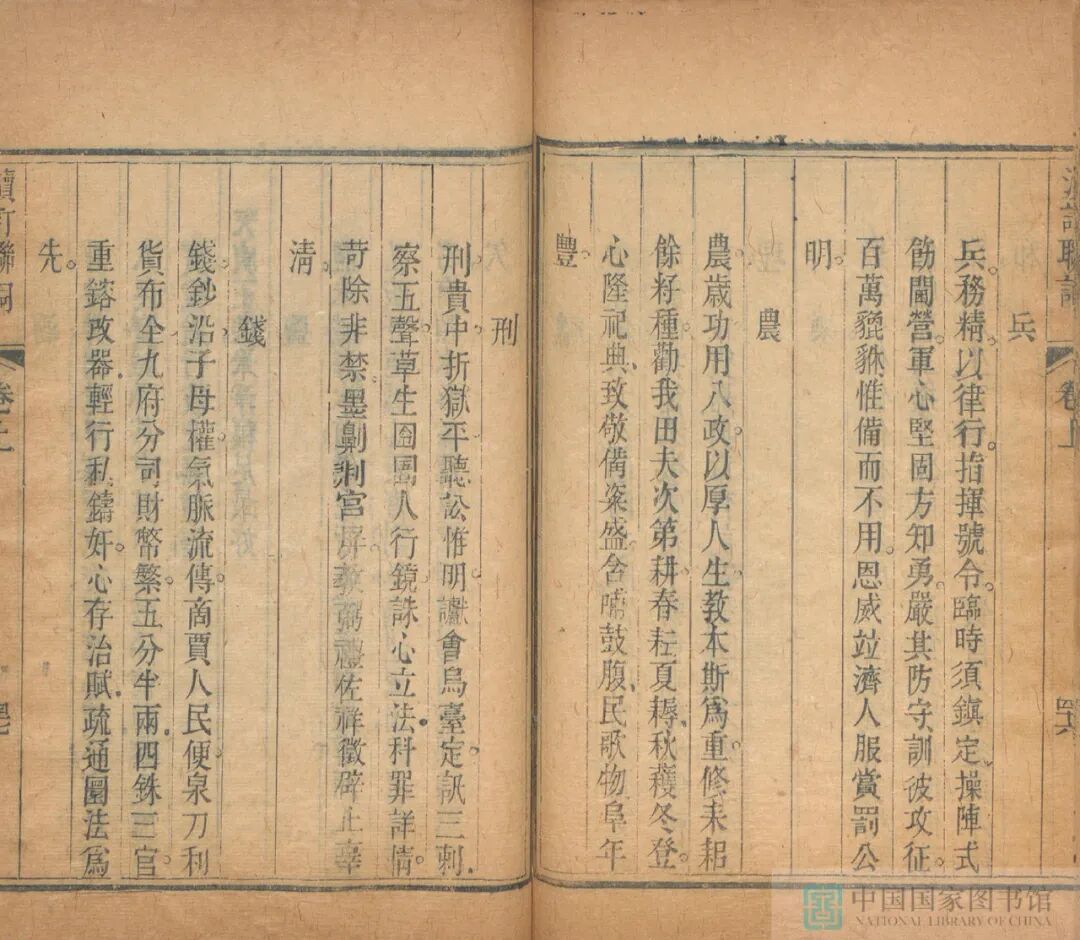 兵
兵。務精。以律行。指揮號令。臨時須鎮定。操陣式
飭閫營。軍心堅固方知勇。嚴其防守。訓彼攻征。
百萬貔貅惟備而不用。恩威竝濟人服賞罰公
明。
農
農。歲功用八政。以厚人生。教本斯爲重。修耒耜
餘籽種。勸我田夫次第耕。春耘夏耨。秋穫冬登。
心隆祀典、致敬備粢盛。含哺鼓腹、民歌物阜年
豐。
卷上
刑
刑。貴中。折獄平。聽訟惟明。讞會烏臺定。訊三刺.
察五聲。草生囹圄人行鏡。誅心立法.科罪詳情。
苛除非禁.墨劓剕宮屏。教弼禮佐祥徵辟止辜
清。
錢
錢。鈔。沿子母權。氣脈流傳。商賈人民便。泉刀利
貨布全。九府分司財幣繁。五分半兩.四銖三官。
重鎔改器.輕行私鑄奸。心存治賦.疏通圜法爲
先。
續訂聯詞
卷之上
中国国家图书馆
NATIONAL LIBRARY OF CHINA